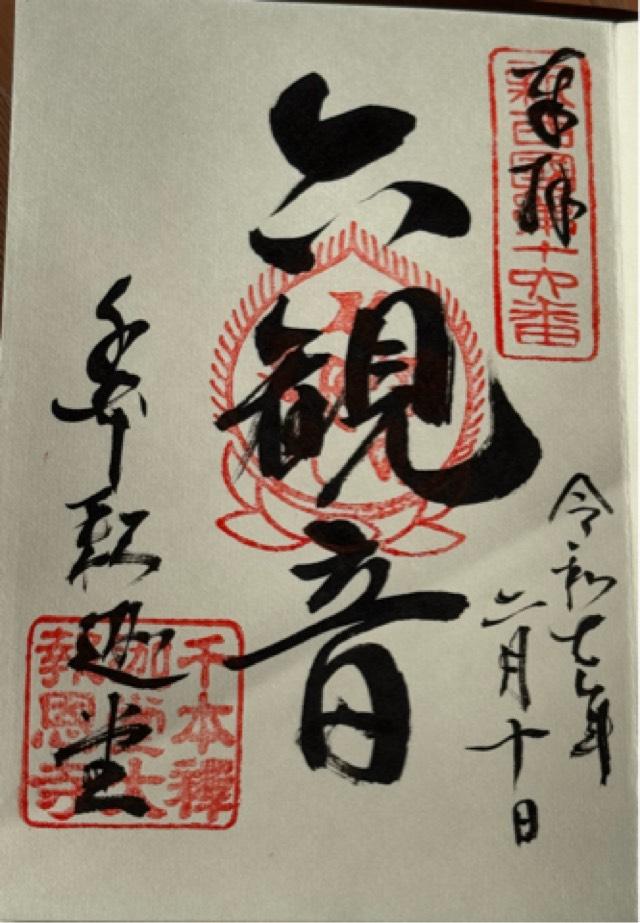 奉拝
新西國第十六番
令和七年
六月十日
六観音
千本釈迦堂
千本釋
迦堂大
報恩寺